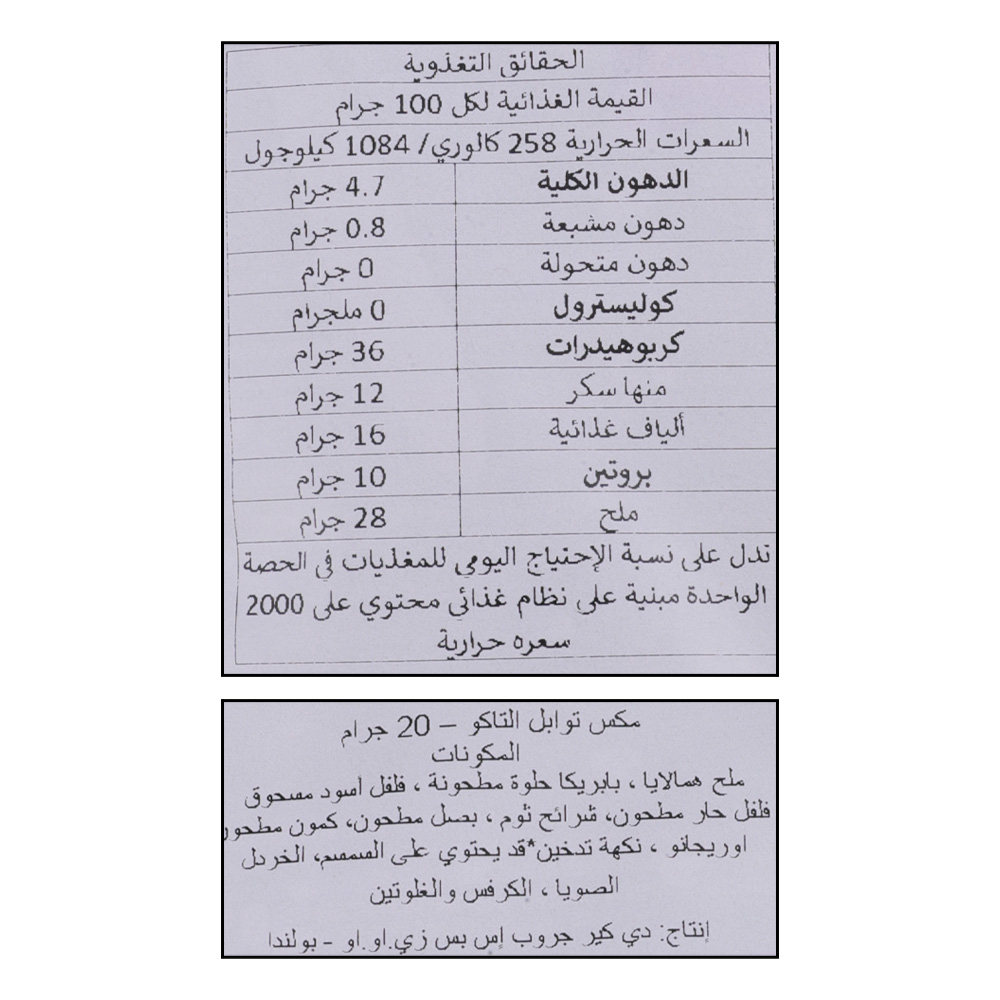 الحقائق التغذوية
القيمة الغذائية لكل 100 جرام
السعرات الحرارية 258 كالوري/ 1084 كيلوجول
الدهون الكلية 4.7 جرام
دهون مشبعة 0.8 جرام
دهون متحولة 0 جرام
كوليسترول 0 ملجرام
كربوهيدرات 36 جرام
منها سكر 12 جرام
ألياف غذائية 16 جرام
بروتين 10 جرام
ملح 28 جرام
تدل على نسبة الإحتياج اليومي للمغذيات في الحصة
الواحدة مبنية على نظام غذائي محتوي على 2000
سعره حرارية
مكس توابل التاكو – 20 جرام
المكونات
ملح همالايا ، بابريكا حلوة مطحونة ، فلفل اسود مسحوق
فلفل حار مطحون، شرائح ثوم ، بصل مطحون، كمون مطحون
اوريجانو ، نكهة تدخين*قد يحتوي على السمسم، الخردل
الصويا ، الكرفس والغلوتين
إنتاج: دي كير جروب إس بس زي.او.او - بولندا